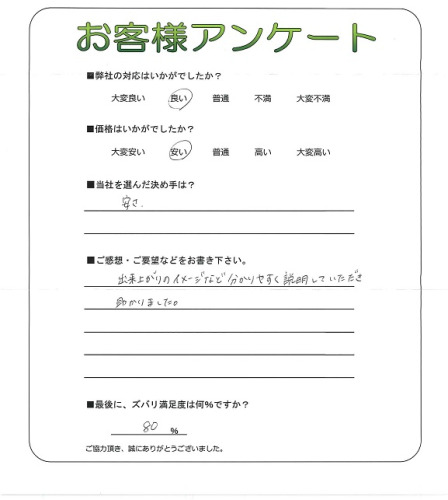 お客様アンケート
■弊社の対応はいかがでしたか？
大変良い 良い 普通 不満 大変不満
■価格はいかがでしたか？
大変安い 安い 普通 高い 大変高い
■当社を選んだ決め手は？
安さ.
■ご感想・ご要望などをお書き下さい。
出来上がりのイメージなど分かりやすく説明していただき
助かりました。
■最後に、ズバリ満足度は何％ですか？
80 ％
ご協力頂き、誠にありがとうございました。